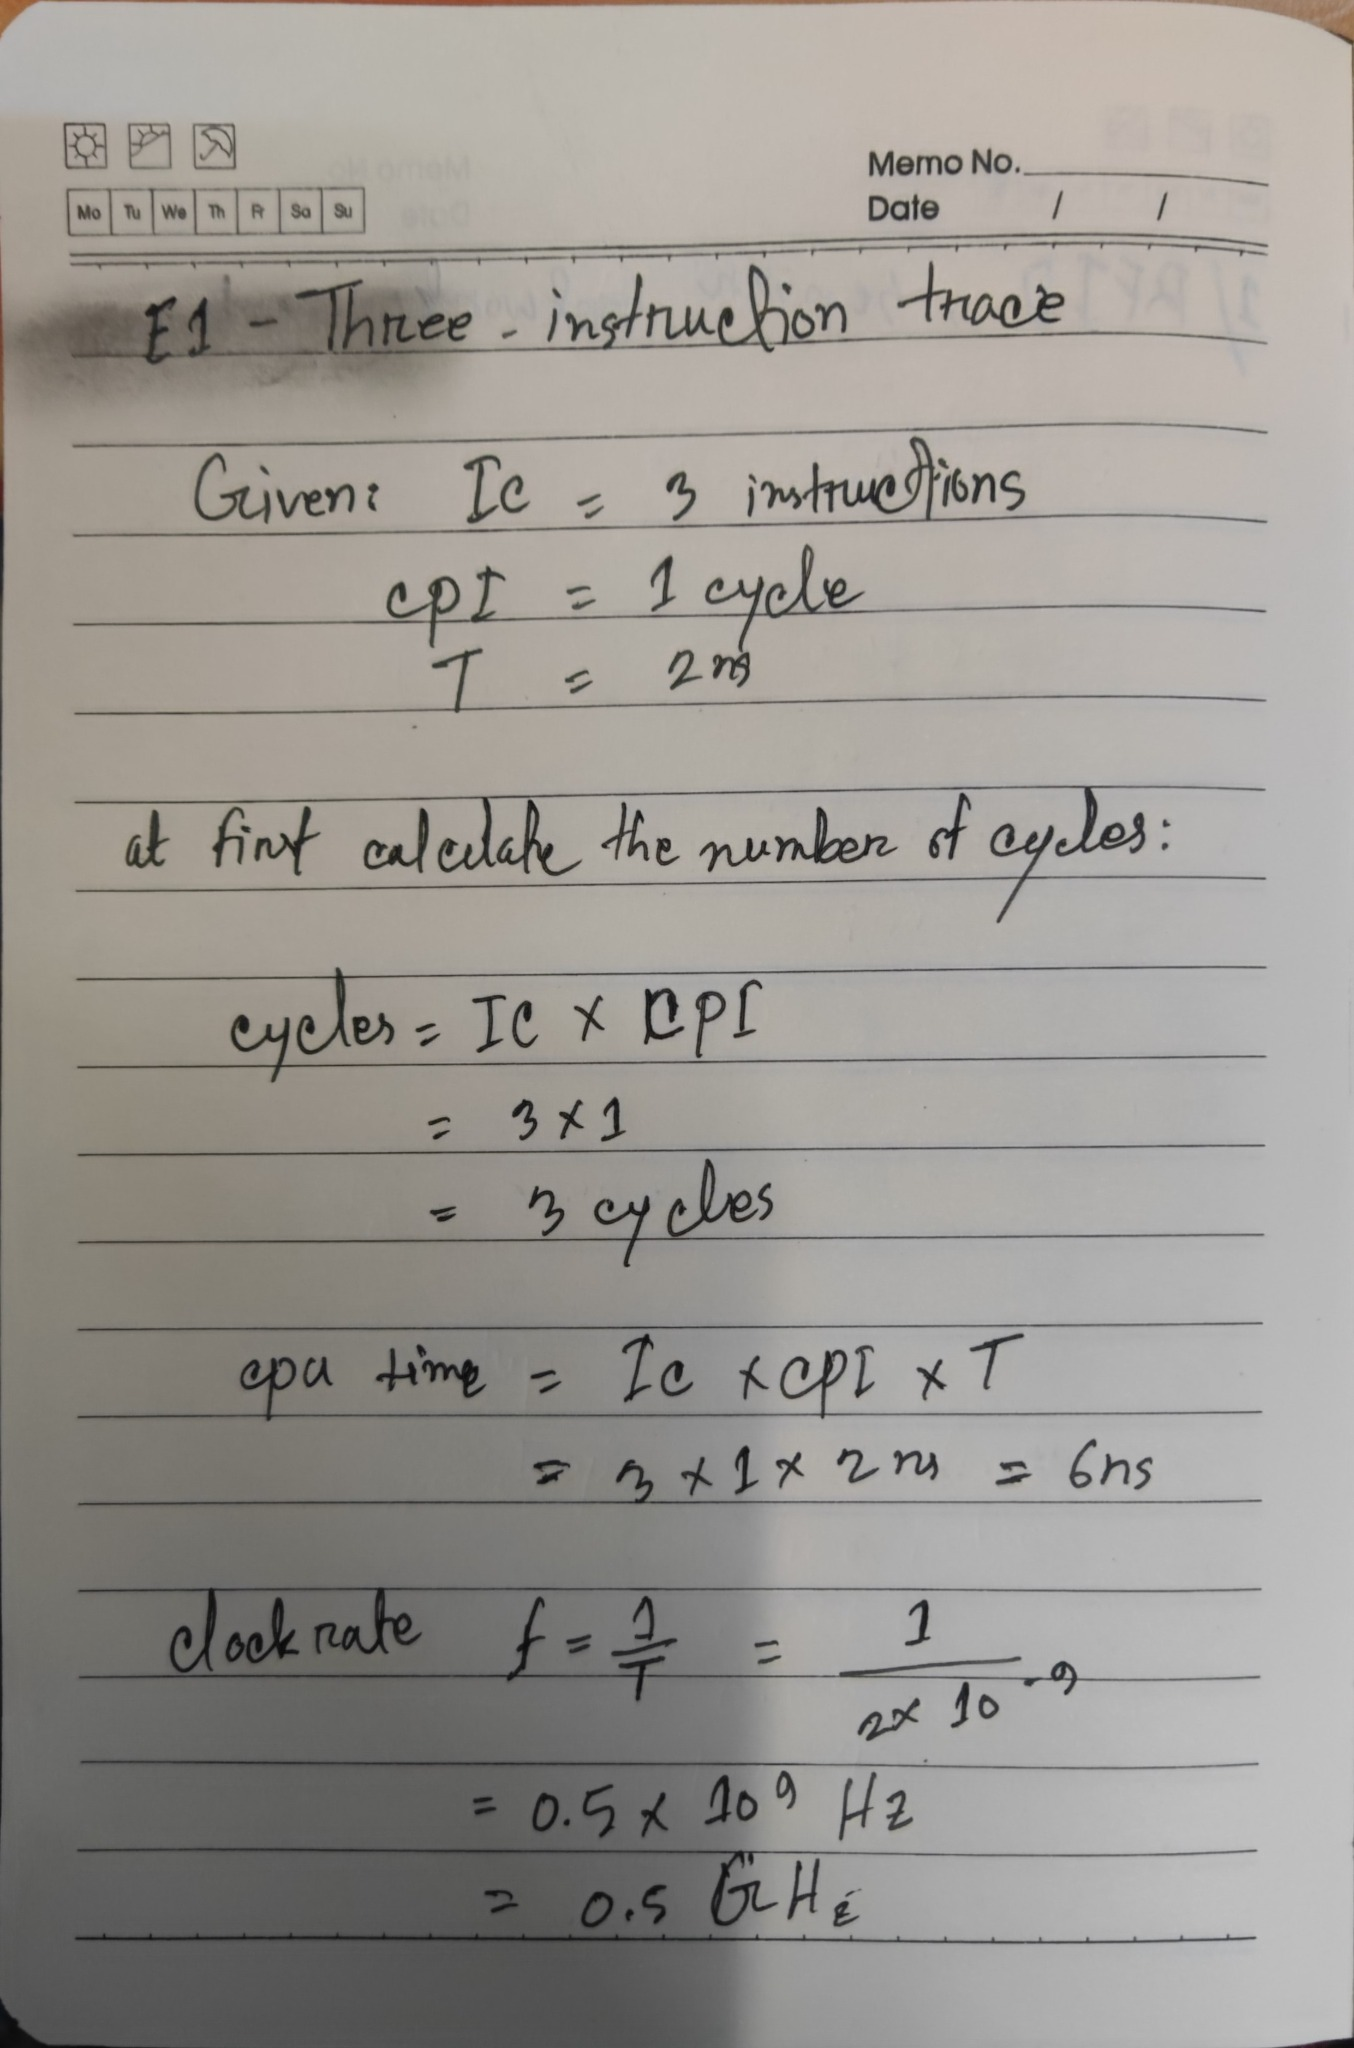 Memo No.
Mo Tu We Th Fr Sa Su
Date / /
E1 - Three - instruction trace
Given: Ic = 3 instructions
cpI = 1 cycle
T = 2 ns
at first calculate the number of cycles:
cycles = IC x CPI
= 3 x 1
= 3 cycles
cpu time = Ic x cpI x T
= 3 x 1 x 2 ns = 6ns
clock rate f = 1/T = 1/2x 10⁻⁹
= 0.5 x 10⁹ Hz
= 0.5 GHz